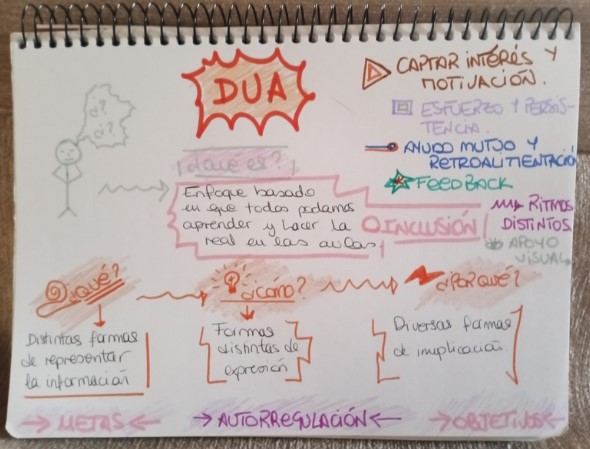 DUA
¿?
¿?
¿Qué es?
Enfoque basado
en que todos podamos
aprender y hacer la
real en las aulas
INCLUSIÓN
CAPTAR INTERÉS Y
MOTIVACIÓN.
ESFUERZO Y PERSIS-
TENCIA.
AYUDO MUTUO Y
RETROALIMENTACIÓ
FEEDBACK
RITMOS
DISTINTOS.
APOYO
VISUAL
¿QUÉ?
Distintas formas
de representar
la información
¿CÓMO?
Formas
distintas de
expresión
¿POR QUÉ?
Diversas formas
de implicación
METAS
AUTORREGULACIÓN
OBJETIVOS